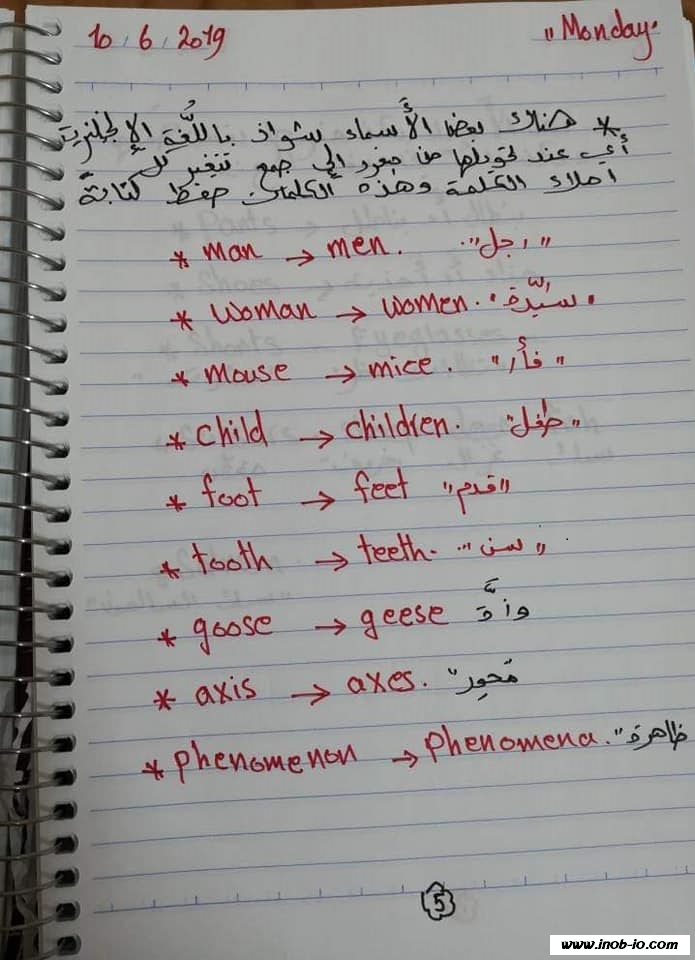 10, 6, 2019 "Monday"
* هناك بعض الأسماء شواذ باللُّغة الإنجلنزية
أي عند تحويلها من مفرد إلى جمع تتغير كل
املاء الكلمة وهذه الكلمات حفظ كتابةً
* man → men. "رجل"
* woman → women. "سيّدة"
* mouse → mice. "فأر"
* child → children. "طفل"
* foot → feet "قدم"
* tooth → teeth. "سن"
* goose → geese وزَّة
* axis → axes. "محور"
* phenomenon → phenomena. "ظاهرة
5
www.inob-io.com